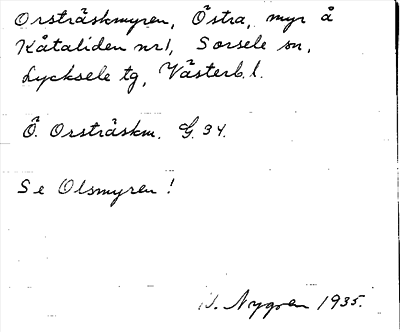 Orsträskmyren, Östra, myr å
Kåtaliden nr1, Sorsele sn,
Lycksele tg, Västerb. l.
Ö. Orsträskm. G. 34.
Se Olsmyren!
Nygren 1935.